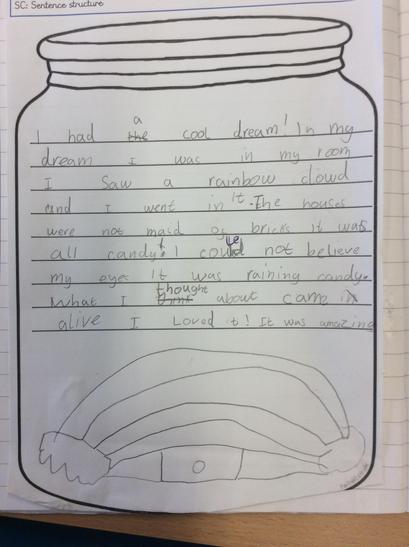 SC: Sentence structure
I had a cool dream! In my
dream I was in my room
I Saw a rainbow clowd
and I went in it. The houses
were not maid of bricks it was
all candy! I could not believe
my eyes It was raining candy.
What I thought about came
alive I Loved it! It was amazing